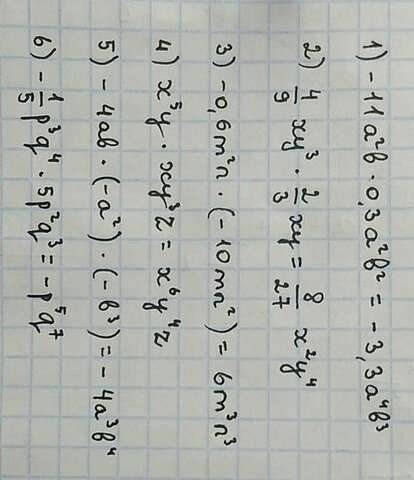 1) -11a²b · 0,3a²b² = -3,3a⁴b³
2) 4/9 xy³ · 2/3 xy = 8/27 x²y⁴
3) -0,6m²n · (-10mn²) = 6m³n³
4) x⁵y · xy³z = x⁶y⁴z
5) -4ab · (-a²) · (-b³) = -4a³b⁴
6) -1/5 p³q⁴ · 5p²q³ = -p⁵q⁷